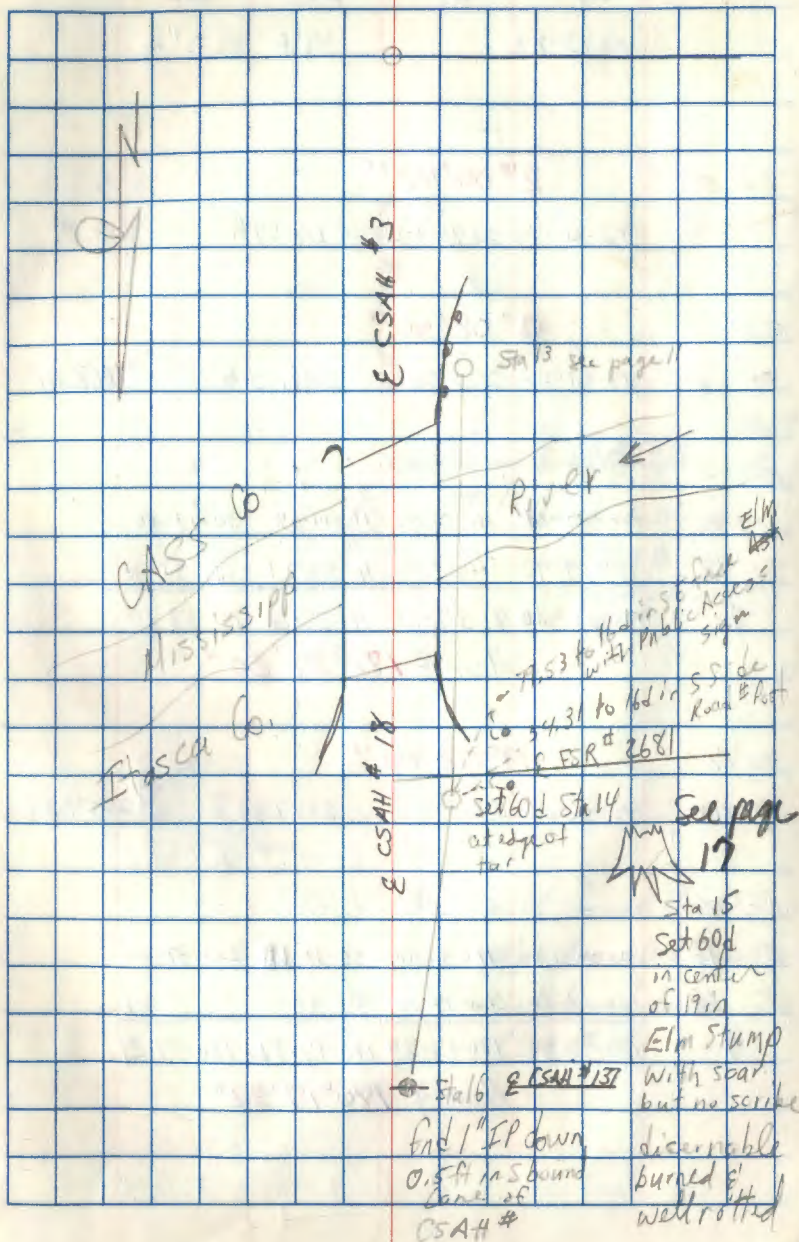 N
℄ CSAH #3
Sta 13 see page 11
River
CASS Co
Mississippi
Itasca Co.
77.53 to 16d in
Elm
with Public Access
Sign
34.31 to 16d in S side
Road # Post
℄ FSR# 2681
℄ CSAH # 18
Set 60d Sta 14
at edge of
tar
See page
17
Sta 15
Set 60d
in center
of 19in
Elm Stump
with scar
but no scribe
dicernable
burned &
well rotted
Sta 16 ℄ CSAH #137
fnd 1" IP down
0.5ft in S bound
Lane of
CSAH #